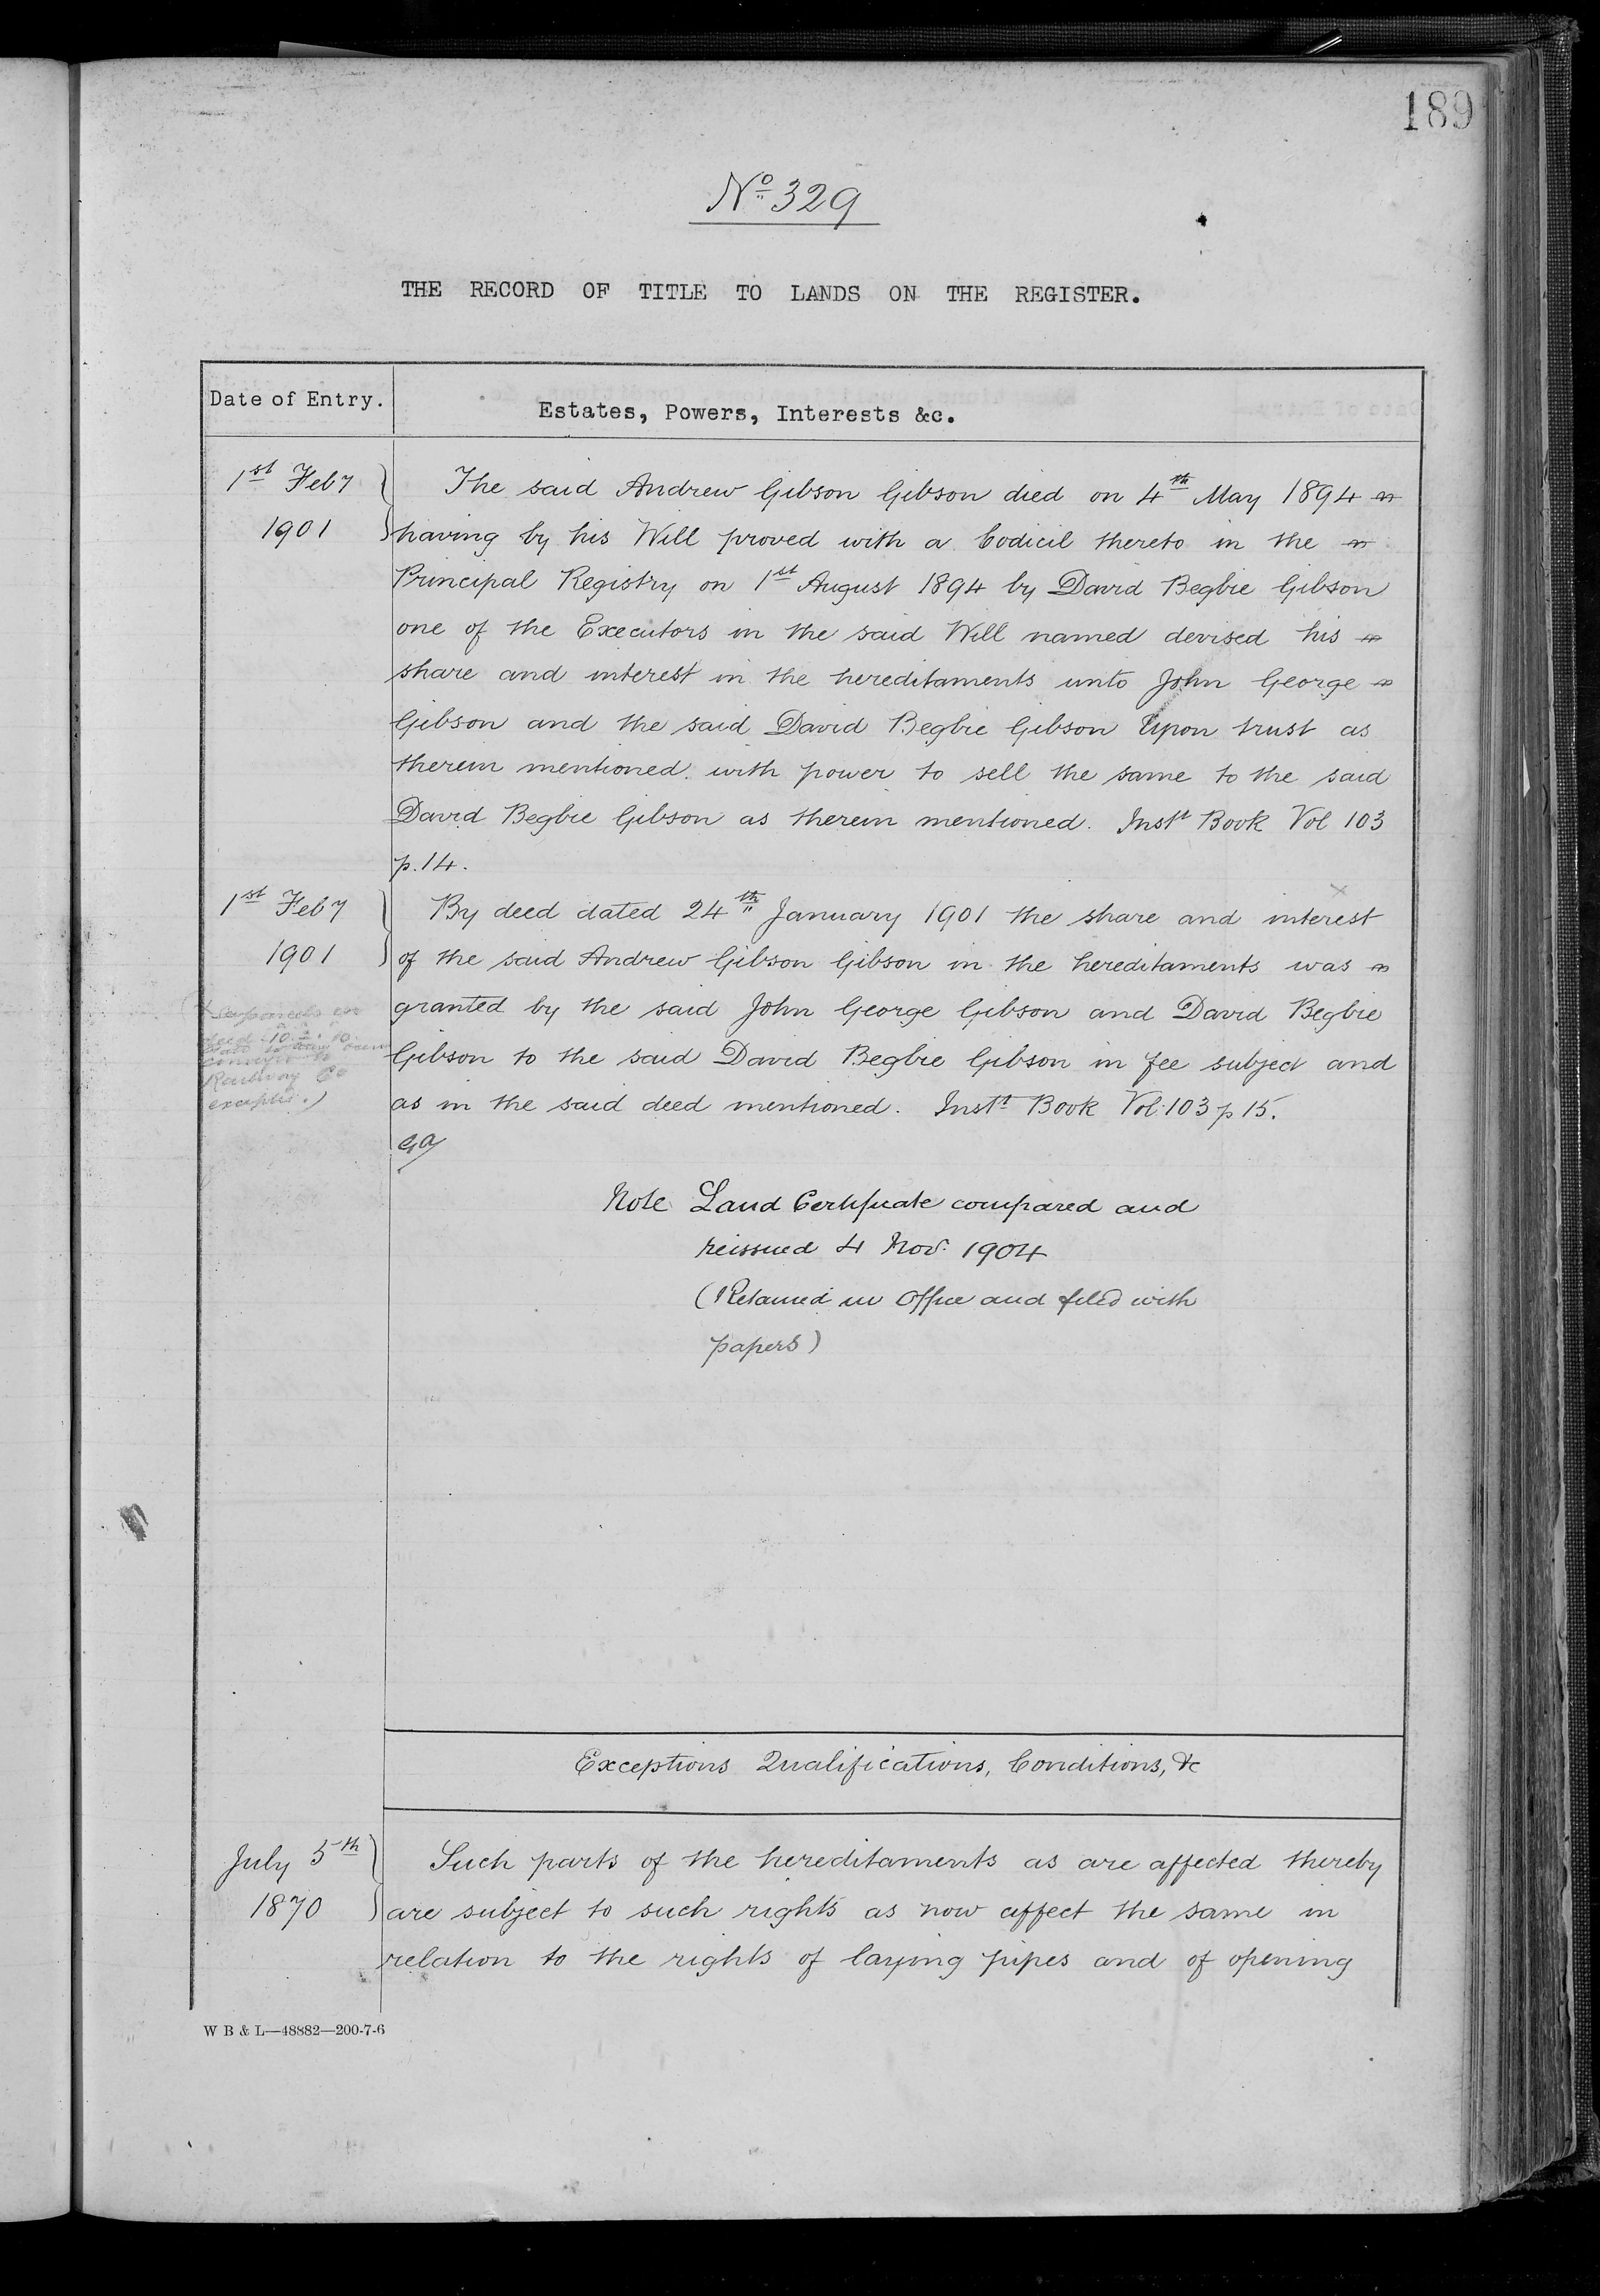 189
No. 329
THE RECORD OF TITLE TO LANDS ON THE REGISTER.
Date of Entry.
Estates, Powers, Interests &c.
1st Feby
1901
The said Andrew Gibson Gibson died on 4th May 1894
having by his Will proved with a Codicil thereto in the
Principal Registry on 1st August 1894 by David Begbie Gibson
one of the Executors in the said Will named devised his
share and interest in the hereditaments unto John George
Gibson and the said David Begbie Gibson Upon trust as
therein mentioned with power to sell the same to the said
David Begbie Gibson as therein mentioned. Inst Book Vol 103
p. 14.
1st Feby
1901
By deed dated 24th January 1901 the share and interest
of the said Andrew Gibson Gibson in the hereditaments was
granted by the said John George Gibson and David Begbie
Gibson to the said David Begbie Gibson in fee subject and
as in the said deed mentioned. Inst Book Vol. 103 p 15.
deed
Railway Co
Note Land Certificate compared and
reissued 4 Nov. 1904
(Retained in Office and filed with
papers)
Exceptions Qualifications, Conditions, &c
July 5th
1870
Such parts of the hereditaments as are affected thereby
are subject to such rights as now affect the same in
relation to the rights of laying pipes and of opening
W B & L—48882—200-7-6